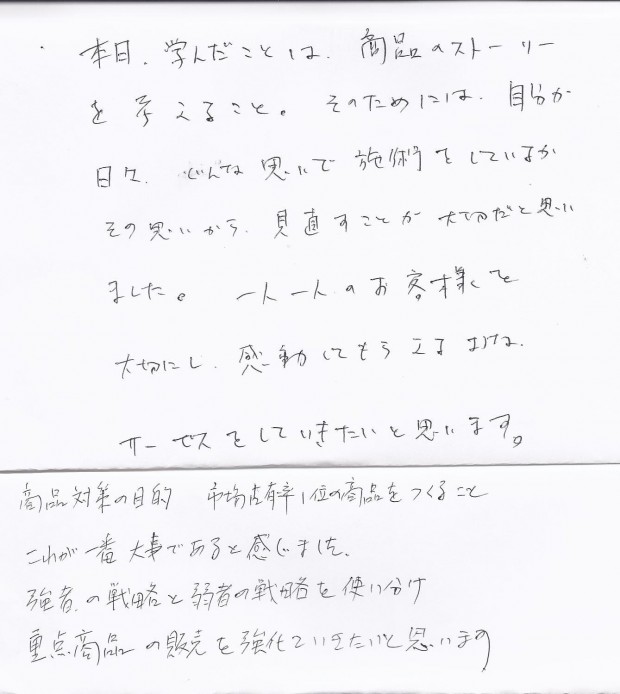 本日、学んだことは、商品のストーリー
を考えること。そのためには、自分が
日々、どんな思いで施術をしているか
その思いから、見直すことが大切だと思い
ました。一人一人のお客様を
大切にし、感動してもらえるような
サービスをしていきたいと思います。
商品対策の目的 市場占有率1位の商品をつくること
これが一番大事であると感じました。
強者の戦略と弱者の戦略を使い分け
重点商品の販売を強化していきたいと思います